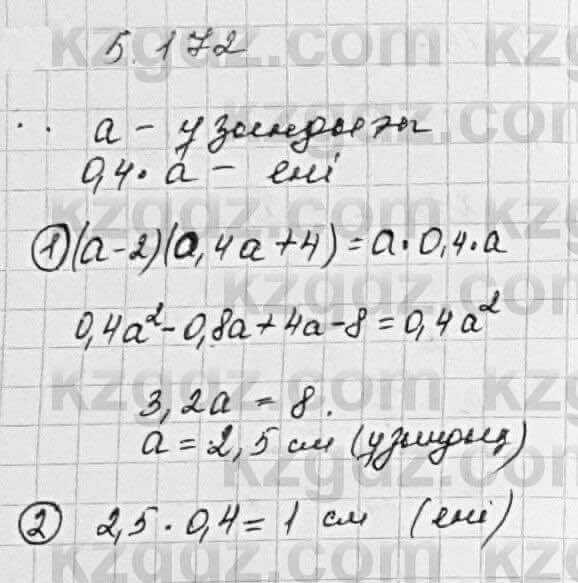 5.172
a - ұзындығы
0,4·a - ені
① (a-2)(0,4a+4)=a·0,4·a
0,4a²-0,8a+4a-8=0,4a²
3,2a=8.
a=2,5 см (ұзындық)
② 2,5·0,4=1 см (ені)
kzgdz.com